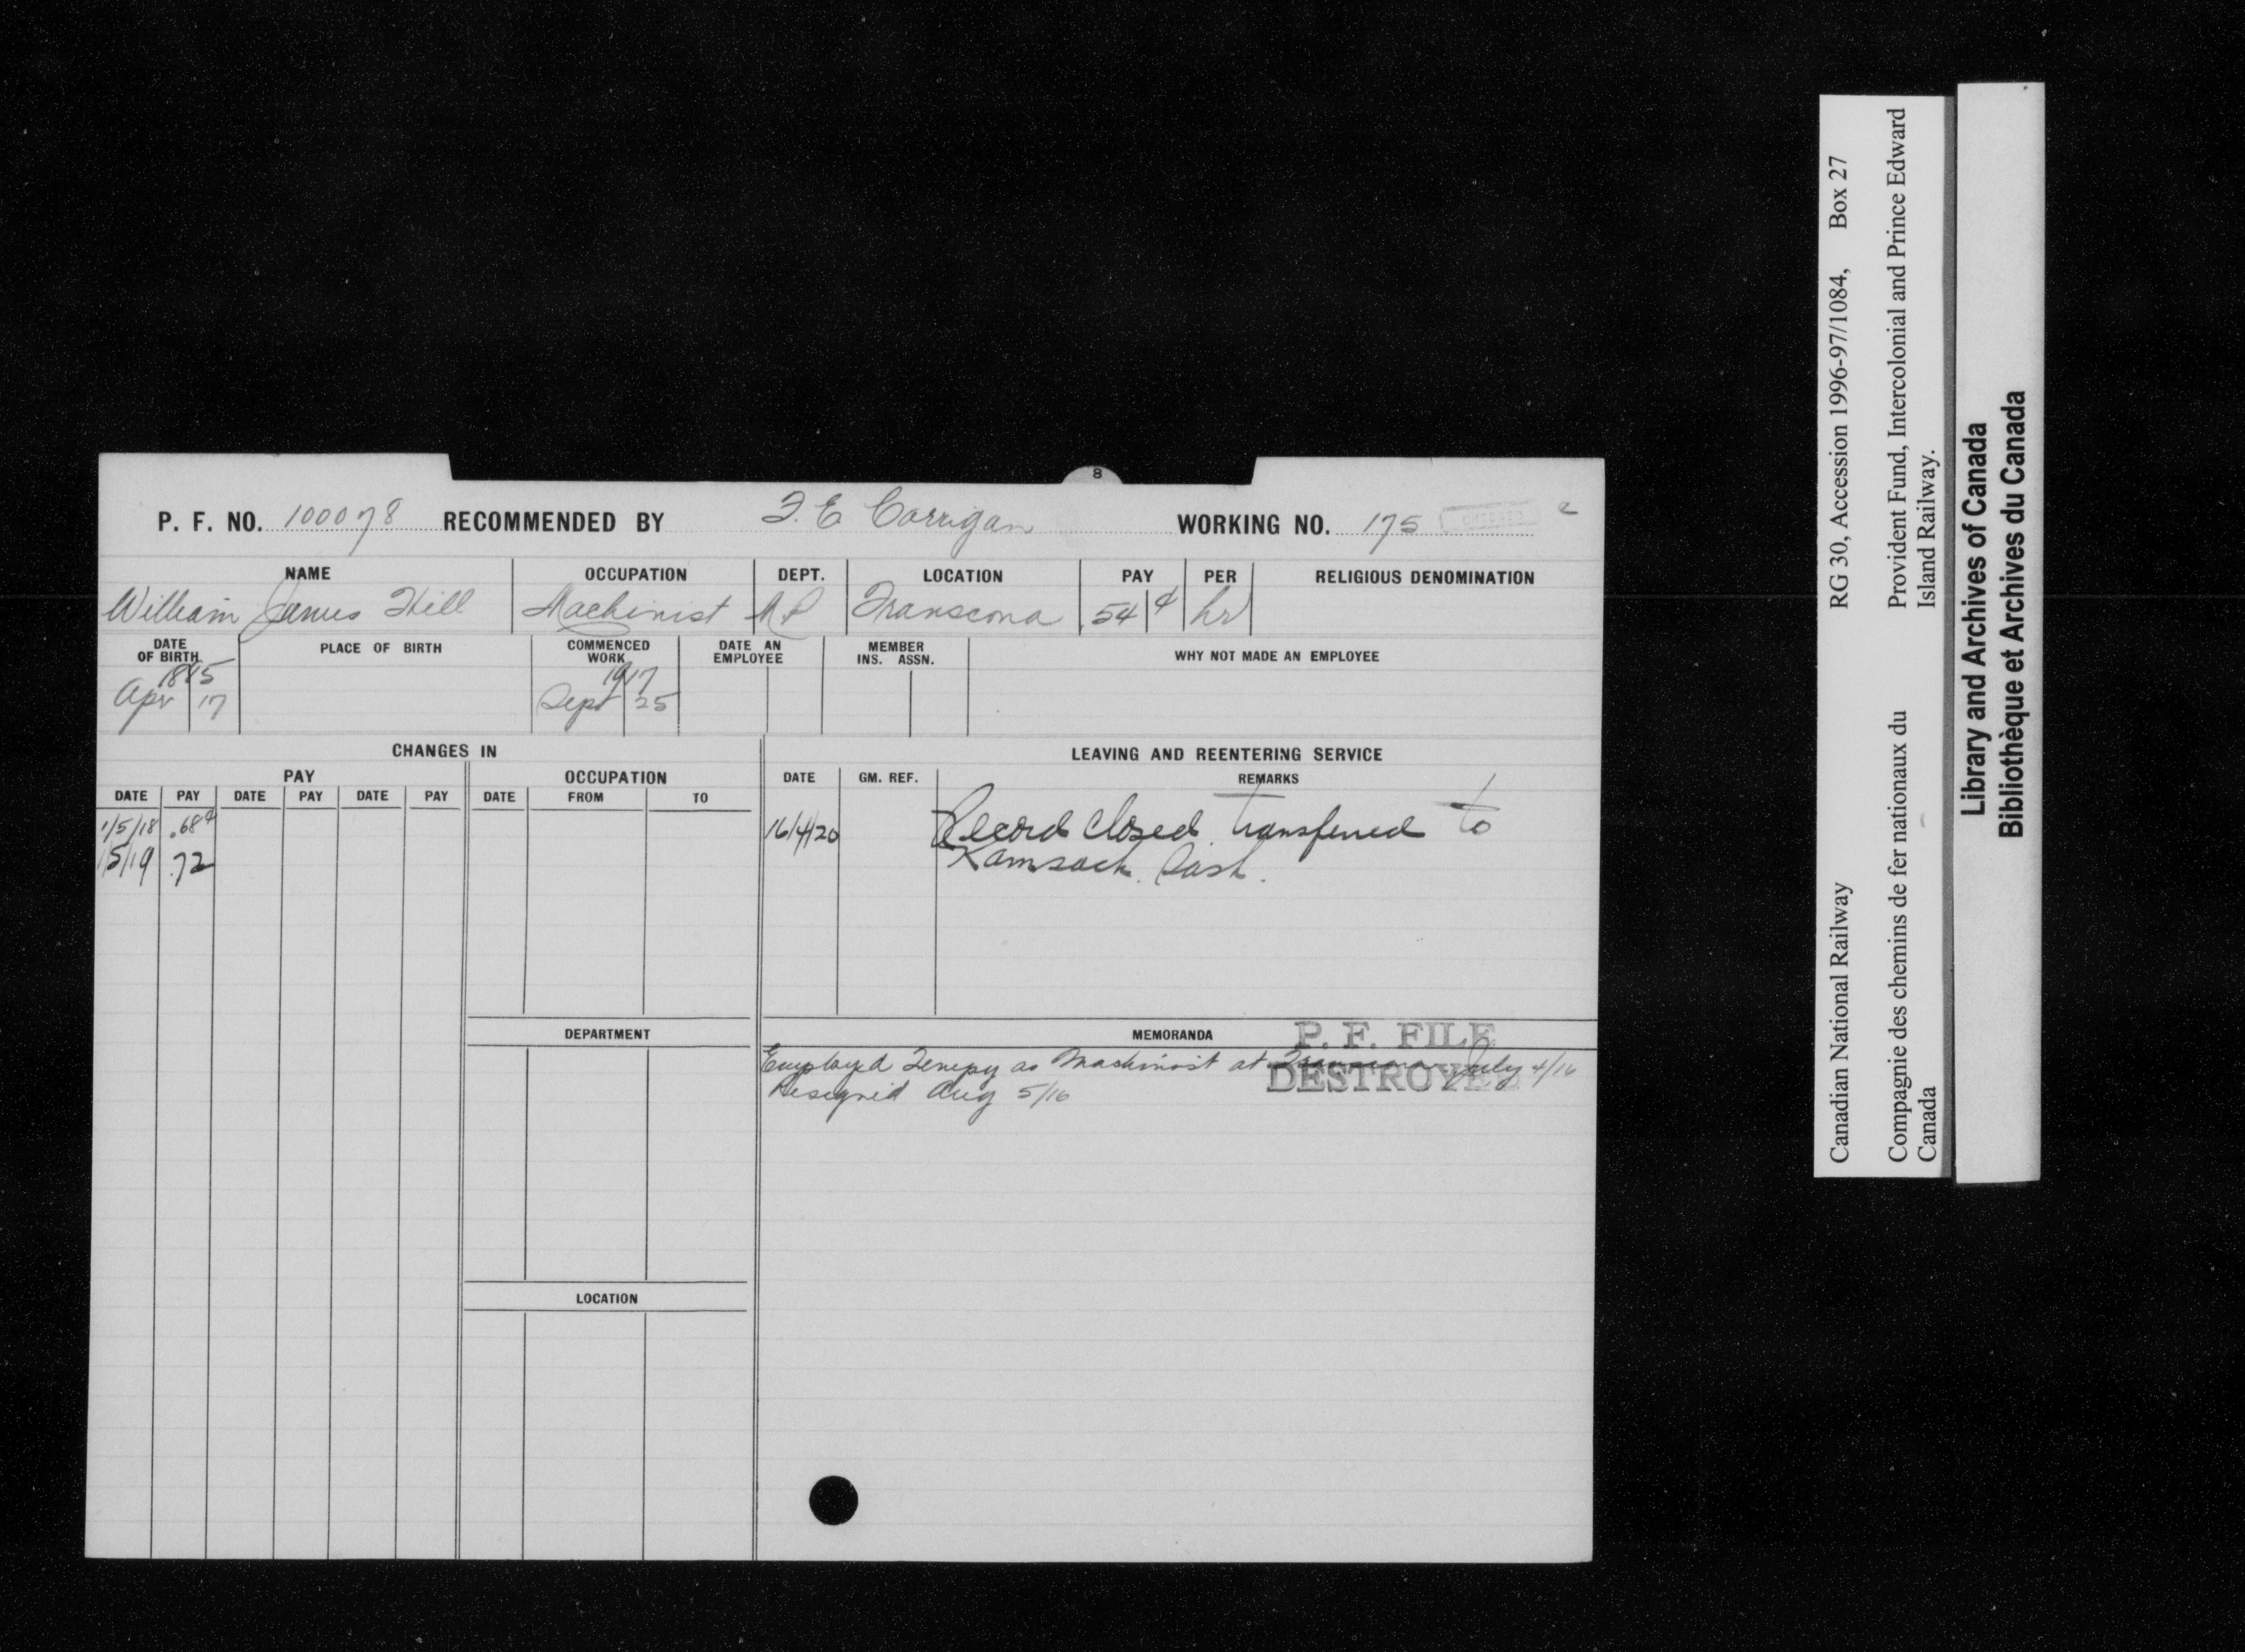 8
P. F. NO. 100078 RECOMMENDED BY F. E Corrigan WORKING NO. 175
NAME OCCUPATION DEPT. LOCATION PAY PER RELIGIOUS DENOMINATION
William James Hill Machinist M P Transcona .54 ¢ hr
DATE OF BIRTH PLACE OF BIRTH COMMENCED WORK DATE AN EMPLOYEE MEMBER INS. ASSN. WHY NOT MADE AN EMPLOYEE
1885 1917
Apr 17 Sept 25
CHANGES IN LEAVING AND REENTERING SERVICE
PAY OCCUPATION DATE GM. REF. REMARKS
DATE PAY DATE PAY DATE PAY DATE FROM TO
1/5/18 .68¢ 16/4/20 Record closed. Transferred to
1/5/19 .72 Kamsack. Sask.
DEPARTMENT MEMORANDA
P. F. FILE
DESTROYED
Employed Tempy as Machinist at Transcona July 4/16
Resigned Aug 5/16
LOCATION
Canadian National Railway RG 30, Accession 1996-97/1084, Box 27
Compagnie des chemins de fer nationaux du Provident Fund, Intercolonial and Prince Edward
Canada Island Railway.
Library and Archives of Canada
Bibliothèque et Archives du Canada